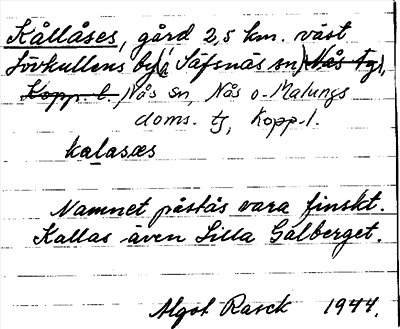 Kållåses, gård 2,5 km. väst
Lövkullens by (i Säfsnäs sn) Nås tg,
Kopp. l. Nås sn, Nås o. Malungs
doms. tg, Kopp. l.
kalasæs
Namnet påstås vara finskt.
Kallas även Lilla Gålberget.
Algot Rasck 1944.